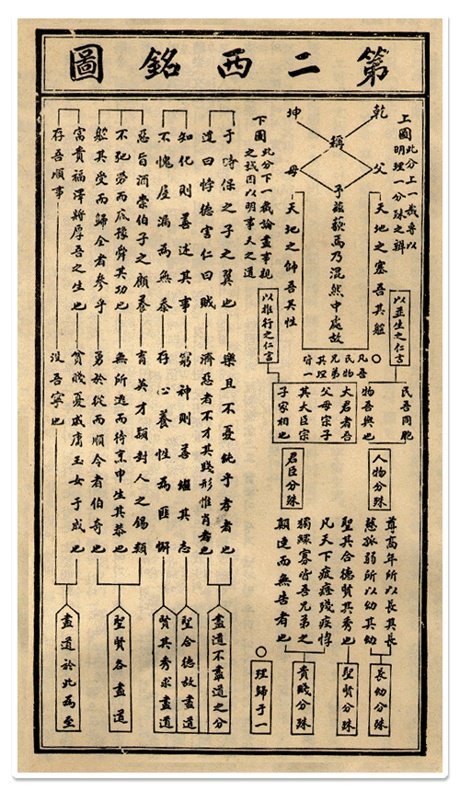 第二西銘圖
上圖
此分上一截專以
明理一分殊之辨
乾父
坤母
稱
天地之塞吾其體
子茲藐焉乃混然中處故
天地之帥吾其性
以並生之仁言
以推行之仁言
民吾同胞
物吾與也
大君者吾
父母宗子
其大臣宗
子家相也
人物分殊
君臣分殊
尊高年所以長其長
慈孤弱所以幼其幼
聖其合德賢其秀也
凡天下疲癃殘疾惸
獨鰥寡皆吾兄弟之
顛連而無告者也
長幼分殊
聖賢分殊
貴賤分殊
○
理歸于一
下圖
此分下一截論盡事親
之誠因以明事天之道
于時保之子之翼也 樂且不憂純乎孝者也
違曰悖德害仁曰賊 濟惡者不才其踐形惟肖者也
盡道不盡道之分
知化則善述其事 窮神則善繼其志
聖合德故盡道
不愧屋漏為無忝 存心養性為匪懈
賢其秀求盡道
惡旨酒崇伯子之顧養 育英才穎封人之錫類
不弛勞而底豫舜其功也 無所逃而待烹申生其恭也
體其受而歸全者參乎 勇於從而順令者伯奇也
聖賢各盡道
富貴福澤將厚吾之生也 貧賤憂戚庸玉女于成也
存吾順事 沒吾寧也
盡道於此為至